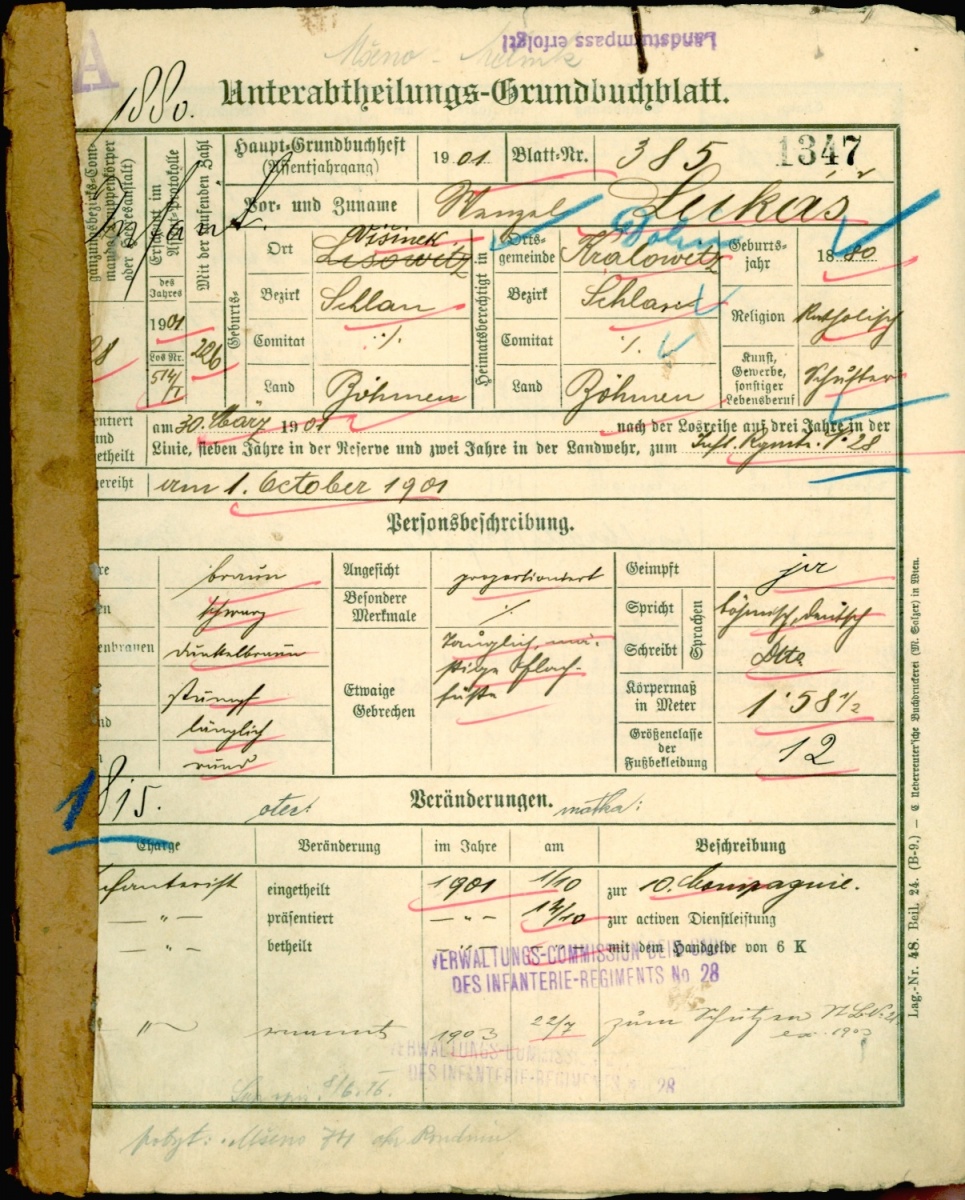 Mšeno - Mělník
Landsturmpass erfolgt!
A
1880.
Unterabtheilungs-Grundbuchblatt.
gänzungsbezirks-Com-
manda
ruppenkörper
oder
eresanstalt)
Erscheint im
Assent-Protokolle
des
Jahres
1901
Los Nr.
514/I
Mit der
laufenden Zahl
226
28
Haupt-Grundbuchheft
(Assentjahrgang)
1901
Blatt-Nr.
385
1347
Vor- und Zuname
Wenzel Lukáš
Geburts-
Ort
Višinek
Lisowitz
Bezirk
Schlan
Comitat
·/.
Land
Böhmen
Heimatsberechtigt in
Orts-
gemeinde
Kralowitz
Böhm
Bezirk
Schlan
Comitat
·/.
Land
Böhmen
Geburts-
jahr
1880
Religion
Katholisch
Kunst,
Gewerbe,
sonstiger
Lebensberuf
Schuster
entiert
und
etheilt
am 30. März 1901 nach der Losreihe auf drei Jahre in der
Linie, sieben Jahre in der Reserve und zwei Jahre in der Landwehr, zum Inft. Rgmte. Nº 28
gereiht
am 1. October 1901
Personsbeschreibung.
re
braun
en
schwarz
enbrauen
dunkelbraun
stumpf
nd
länglich
n
rund
Angesicht
proportioniert
Besondere
Merkmale
·/.
Etwaige
Gebrechen
Tauglich, mä-
ßige Flach-
füße
Geimpft
ja
Spricht
Schreibt
Sprachen
böhmisch, deutsch
Dtto
Körpermaß
in Meter
1·58 1/2
Größenclasse
der
Fußbekleidung
12
1815.
otec:
Veränderungen.
matka:
Charge
Veränderung
im Jahre
am
Beschreibung
Infanterist
eingetheilt
1901
1/10
zur 10. Compagnie.
— " —
präsentiert
— " —
14/10
zur activen Dienstleistung
— " —
betheilt
— " —
— " —
mit dem Handgelde von 6 K
VERWALTUNGS-COMMISSION
DES INFANTERIE-REGIMENTS No 28
— " —
ernannt
1903
22/7
zum Schützen
ex 1903
VERWALTUNGS-COMMISS
DES INFANTERIE-REGIMENTS 28
8/6.16.
pobyt: Mšeno
Lag.-Nr. 48. Beil. 24. (B-9.) — C. Ueberreuter'sche Buchdruckerei (M. Salzer) in Wien.